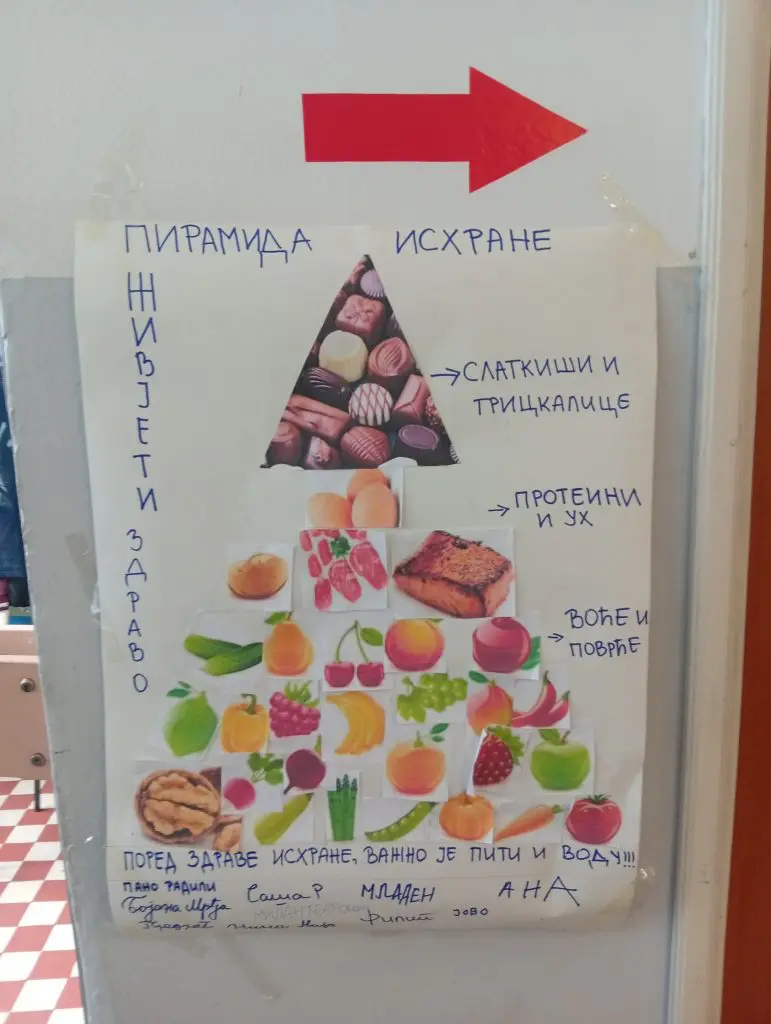 ПИРАМИДА ИСХРАНЕ
ЖИВЈЕТИ ЗДРАВО
СЛАТКИШИ И
ТРИЦКАЛИЦЕ
ПРОТЕИНИ
И УХ
ВОЋЕ И
ПОВРЋЕ
ПОРЕД ЗДРАВЕ ИСХРАНЕ, ВАЖНО ЈЕ ПИТИ И ВОДУ!!!
ПАНО РАДИЛИ
Саша Р
МЛАДЕН
АНА
Бојана Мрђа
Филип
ЈОВО